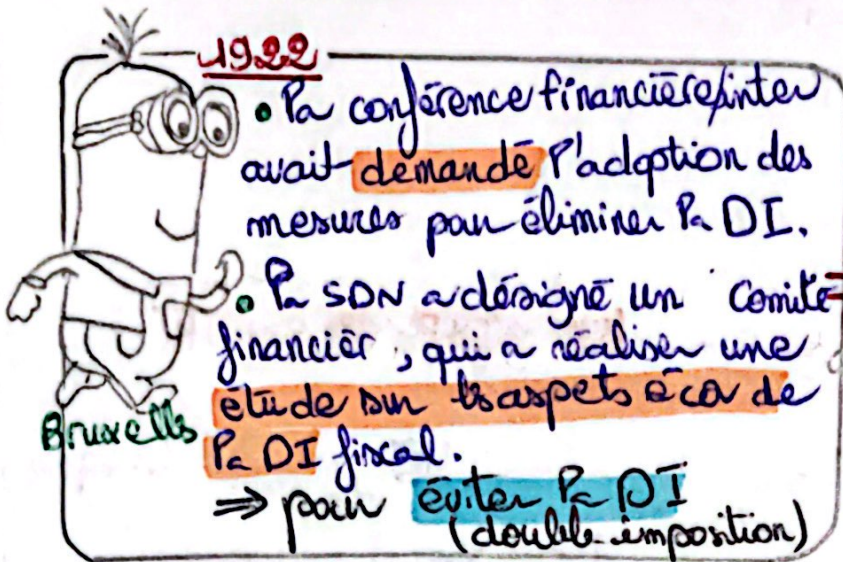 1922
• la conférence financière/inter
avait demandé l'adoption des
mesures pour éliminer la DI.
• la SDN a désigné un comité
financier, qui a réaliser une
étude sur les aspets éco de
la DI fiscal.
Bruxells
⇒ pour éviter la DI
(double imposition)